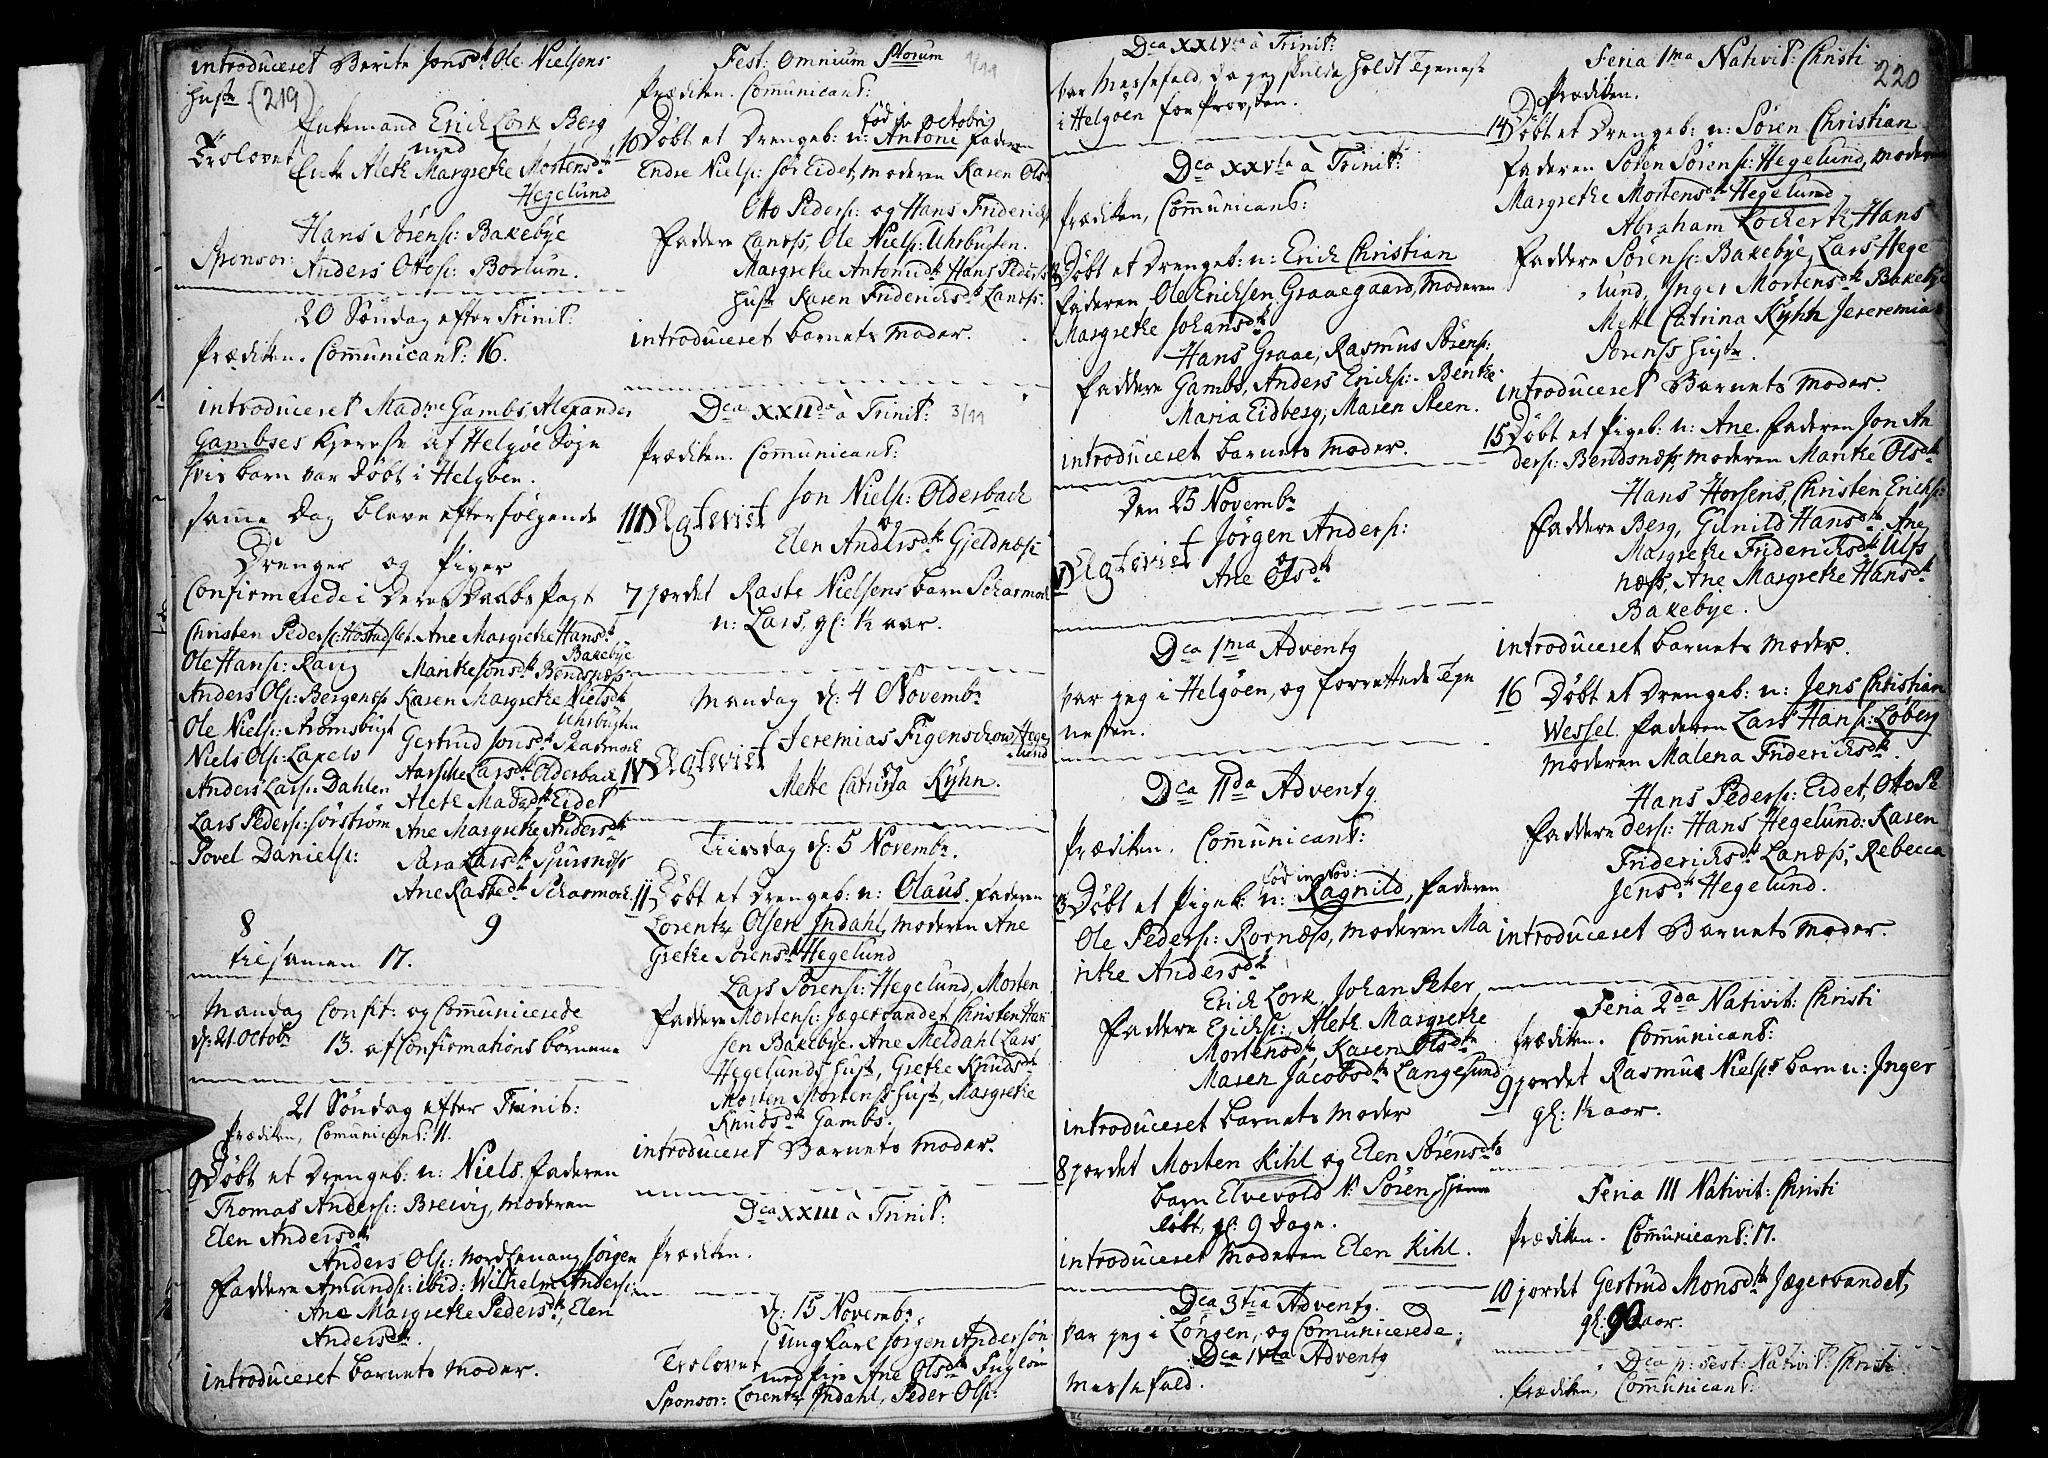 introduceret Berite Jonsdt Ole Nielsens
Hustr. (219)
Enkemand Erich Lork Berg
Trolovet med
Enke Aleth Margrethe Mortensdt
Hegelund
Hans Sörens: Bakebye
Sponsor:
Anders Ottos: Borlum.
20 Söndag efter Trinit:
Prædiken. Communicant: 16.
introduceret Madme Gambs, Alexander
Gambses Kjereste af Helgöe Sogn
hvis barn var Döbt i Helgöen.
samme Dag bleve efterfölgende
Drenger og Piger
Confirmerede i Deres Daabs Pagt
Christen Peders: Hostadslet. Ane Margrethe Hansdt
Bakebye
Ole Hans: Rang Marithe Jonsdt Bendsnæss
Anders Ols: Bergenæss Karen Margrethe Nielsdt
Uhrbugten
Ole Niels: Strömsbugt Gertrud Jonsdt Skarmoch
Niels Ols: Laxelv Aarsche Larsdt Olderbach
Anders Lars: Dahlen Aleth Madsdt Eidet
Lars Peders: Sörström Ane Margrethe Andersdt
Povel Daniels: Sara Larsdt Sjursnæss
Ane Rastedt Scharmoch.
8 9
tilsamen 17.
Mandag Confit: og Communicerede
d: 21 Octobr 13. af Confirmations börnene
21 Söndag efter Trinit:
Prædiken, Communicant: 11.
9 Döbt et Drengeb: n: Niels. Faderen
Thomas Anders: Breivig, Moderen
Elen Andersdt
Anders Ols: Nordlenang Jörgen
Faddere Amunds: ibid: Wilhelm Anders:
Ane Margrethe Pedersdt, Elen
Andersdt.
introduceret barnets Moder.
Fest: Omnium Storum 1/11
Prædiken. Comunicant:
född in octobri
10 Döbt et Drengeb: n: Antoni Faderen
Endre Niels: Sör Eidet, Moderen Karen Ols
Otto Peders: og Hans Friderichs
Faddere Lanæss, Ole Niels: Uhrbugten.
Margrethe Antonidt Hans Peders
Hustr Karen Friderichsdt Lanæss.
introduceret barnets Moder.
Dca XXIIda à Trinit: 3/11
Prædiken. Communicant:
Jon Niels: Olderbach
III Egteviet og
Elen Andersdt Gjeldnæss
7 Jordet Raste Nielsens barn Scharmoch
n: Lars, gl: ½ aar.
Mandag d: 4 Novembr
Jeremias Figenschow Hege
lund
IV Egteviet og
Mette Catrina Kÿhn.
Tiirsdag d: 5 Novembr.
11 Döbt et Drengeb: n: Olaus. Faderen
Lorentz Olsen Indahl, Moderen Ane
Grethe Sörensdt Hegelund
Lars Sörens: Hegelund, Morten
Faddere Mortens: Jægervandet, Christen Han
sen Bakebye. Ane Meldahl Lars
Hegelunds Hustr, Grethe Knudsdt
Morten Mortenss Hustr, Margrethe
Knudsdt Gambs.
introduceret Barnets Moder.
Dca XXIII à Trinit:
Prædiken.
d: 15 Novembr
Ungkarl Jörgen Andersön
Trolovet
med Pige Ane Olsdt Fuglöen
Sponsor: Lorentz Indahl, Peder Ols:
Dca XXIVta à Trinit:
var Messefald, da jeg skulde holdt Tjeneste
i Helgöen for Provsten.
Dca XXVta à Trinit:
Prædiken, Communicant:
12 Döbt et Drengeb: n: Erich Christian
Faderen Ole Erichsen Graaegaard, Moderen
Margrethe Johansdt
Hans Graae, Rasmus Sörens:
Faddere Gambs, Anders Erichs:. Benthe
Maria Eidberg, Maren Steen.
introduceret barnets Moder.
Den 25 Novembr
Jörgen Anders:
V Egteviet og
Ane Olsdt
Dca 1ma Adventq
var jeg i Helgöen, og forrettede Tje
nesten.
Dca IIda Adventq
Prædiken. Communicant:
föd in Nov:
13 Döbt et Pigeb: n: Ragnild, Faderen
Ole Peders: Rornæss, Moderen Ma
rithe Andersdt
Erich Lork, Johan Peter
Faddere Erichs:, Aleth Margrethe
Mortensdt Karen Olsdt
Maren Jacobsdt Langesund
introduceret barnets Moder
8 Jordet Morten Kihl og Elen Sörensdts
barn Elvevold N: Sören, hjemme
döbt, gl: 9 Dage.
introduceret Moderen Elen Kihl.
Dca 3tia Adventq.
var jeg i Löngen, og Comunicerede;
Dca IVta Adventq
Messefald.
220
Feria 1ma Nativit: Christi
Prædiken.
14 Döbt et Drengeb: n: Sören Christian
Faderen Sören Sörens: Hegelund, Moderen
Margrethe Mortensdt Hegelund
Abraham Lockertz, Hans
Faddere Sörens: Bakebye, Lars Hege
lund, Inger Mortensdt Bakebye
Mette Catrina Kÿhn Jereremias
Sörenss Hustr.
introduceret Barnets Moder.
15 Döbt et Pigeb: n: Ane. Faderen Jon An
ders: Bendsnæss, Moderen Marithe Olsdt
Hans Horsens, Christen Erichs:
Faddere Berg, Gunild Hansdt, Ane
Margrethe Friderichsdt Ulfs
næss, Ane Margrethe Hansdt
Bakebye.
introduceret barnets Moder.
16 Döbt et Drengeb: n: Jens Christian
Wessel. Faderen Lars Hans: Loberg
Moderen Malena Friderichsdt.
Hans Peders: Eidet, Otto Pe
Faddere ders: Hans Hegelund: Karen
Friderichsdt Lanæss, Rebecca
Jensdt Hegelund.
introduceret Barnets Moder.
Feria 2da Nativit: Christi
Prædiken. Communicant:
9 Jordet Rasmus Nielss barn n: Inger
gl: ½ aar.
Feria III Nativit: Christi
Prædiken. Communicant: 17.
10 Jordet Gertrud Monsdt Jægervandet,
gl: 90 aar.
Dca p: fest: Nativit: Christi
Prædiken, Communicant: